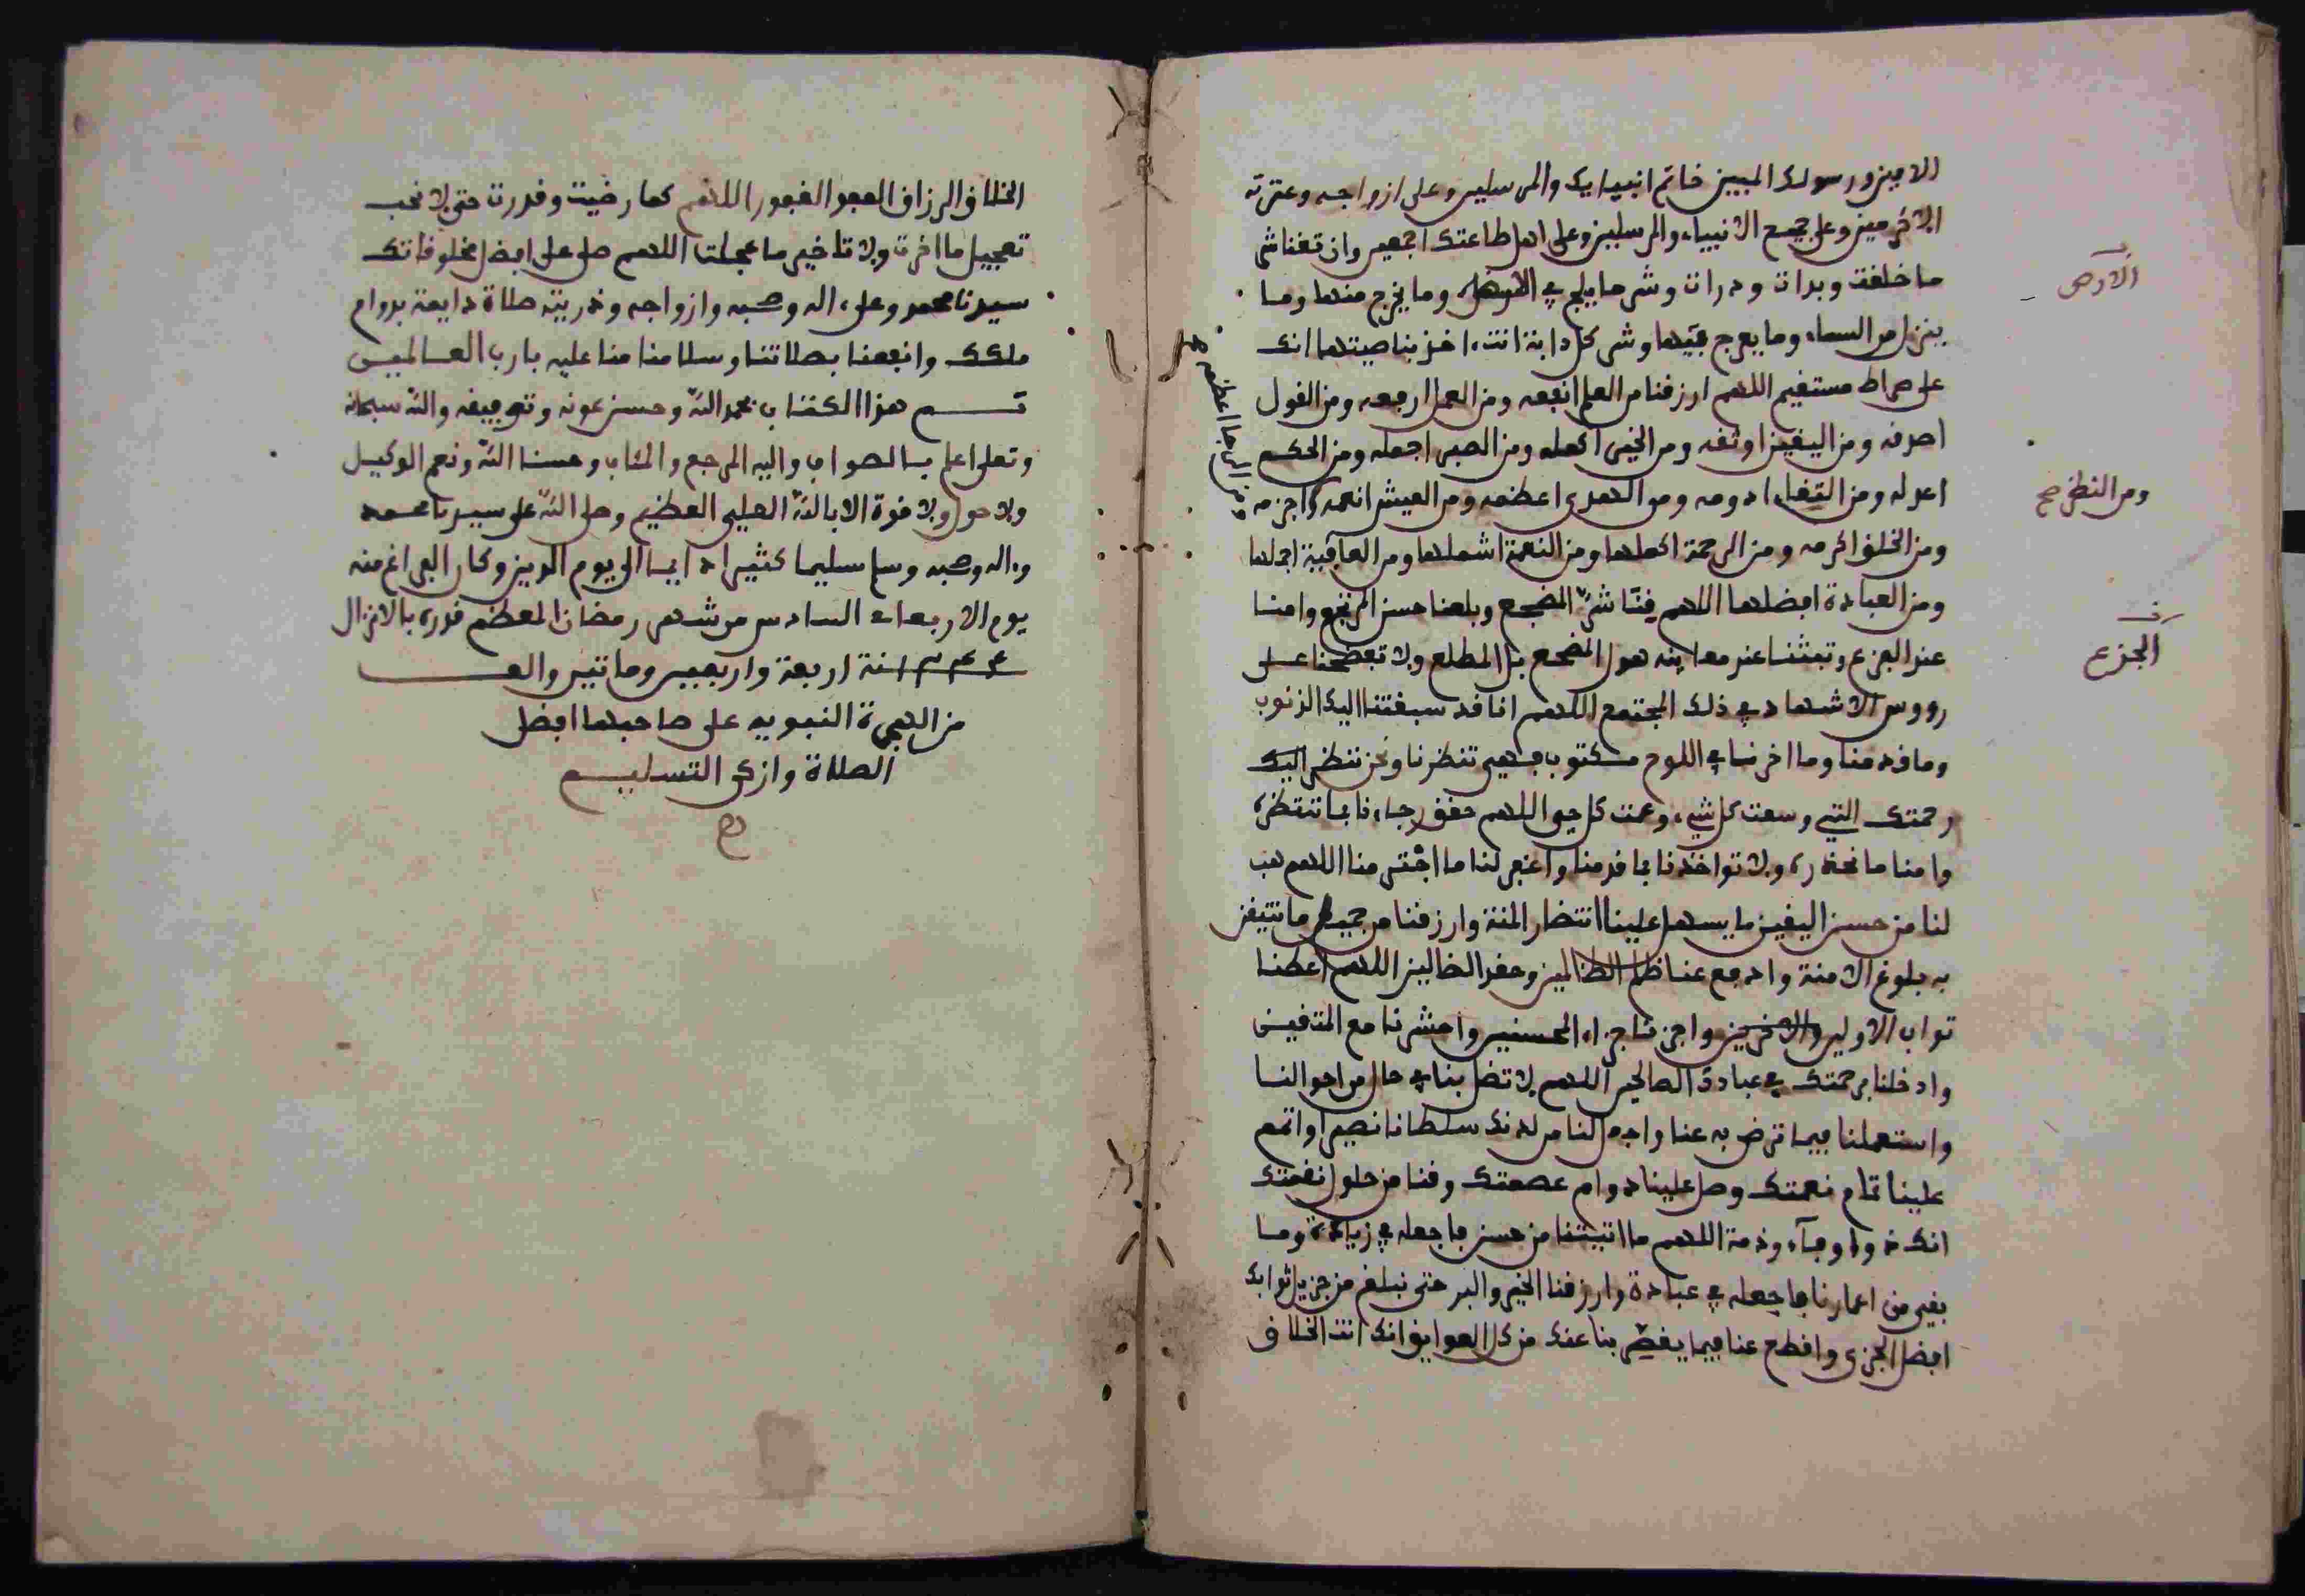 الامين ورسولك المبين خاتم انبيايك والمرسلين وعلى ازواجه وعترته
الاكرمين وعلى جميع الانبياء والمرسلين وعلى اهل طاعتك اجمعين وان تقنا شر
ما خلقت وبرات وذرات وشر ما يلج في الارض وما يخرج منها وما
الارض
ينزل من السماء وما يعرج فيها وشر كل دابة انت ءاخذ بناصيتها انك
على صراط مستقيم اللهم ارزقنا من العلم انفعه ومن العمل ارفعه ومن القول
اصدقه ومن اليقين اوثقه ومن الخير اكمله ومن الصبر اجمله ومن الحكم
اعدله ومن القضاء ادومه ومن الهدى اعظمه ومن العيش انعمه واجزمه
ومن النظر صح
ومن الرجا اعظمه صح
ومن الخلق اكرمه ومن الرحمة اكملها ومن النعمة اشملها ومن العافية اجملها
ومن العبادة افضلها اللهم قنا شر المضجع وبلغنا حسن المرتجع وامنا
عند الفزع وثبتنا عند معاينه هول المضجع بل المطلع ولا تفضحنا على
الجزع
رووس الاشهاد في ذلك المجتمع اللهم انا قد سبقتنا اليك الذنوب
وما قدمنا وما اخرنا في اللوح مكتوب فهي تنظرنا ونحن ننتظر اليك
رحمتك التي وسعت كل شيء وعمت كل حي اللهم حقق رجاءنا بما ننتظره
وامنا ما نحذره ولا تواخذنا بما قدمنا واغفر لنا ما اجترمنا اللهم هب
لنا من حسن اليقين ما يسهل علينا انتضار المنة وارزقنا من جميل ما نتيقن
به بلوغ الامنة وادفع عنا ظلم الظالمين وحقد الضالين اللهم اعطنا
ثواب الاولين والاخرين واجزنا جزاء المحسنين واحشرنا مع المتقين
وادخلنا برحمتك في عبادك الصالحين اللهم لا تضل بنا في حال من احوالنا
واستعملنا فيما ترضى به عنا واجعل لنا من لدنك سلطانا نصيرا واتمم
علينا تمام نعمتك وصل علينا دوام عصمتك وقنا من حلول نقمتك
انك ذو وفاء وذمة اللهم ما اتيتنا من حسن فاجعله في زيادة وما
بقي من اعمارنا فاجعله في عبادة وارزقنا الخير والبر حتى نبلغ من جزيل ثوابك
افضل الجزى واقطع عنا فيما يفضي بنا عندك من كل العوايق انك انت الخلاق
الخلاق الرزاق العفو الغفور اللهم كما رضيت وقدرت حتى لا نحب
تعجيل ما اخرت ولا تاخير ما عجلت اللهم صل على افضل مخلوقاتك
سيدنا محمد وعلى ءاله وصحبه وازواجه وذريته صلاة دايمة بدوام
ملكك وانفعنا بصلاتنا وسلامنا منا عليه يا رب العالمين
تم هذا الكتاب بحمد الله وحسن عونه وتوفيقه والله سبحانه
وتعلى اعلم بالصواب واليه المرجع والمئاب وحسبنا الله ونعم الوكيل
ولا حول ولا قوة الا بالله العلي العظيم وصلى الله على سيدنا محمد
وءاله وصحبه وسلم تسليما كثيرا دايما الى يوم الدين وكان الفراغ منه
يوم الاربعاء السادس من شهر رمضان المعظم قدره بالانزال
سنة اربعة واربعين وماتين والف
من الهجرة النبويه على صاحبها افضل
الصلاة وازكى التسليم